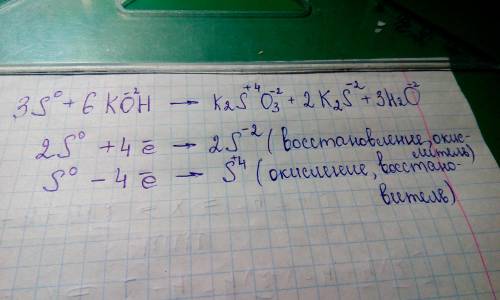 3S⁰ + 6KO⁻²H → K₂S⁺⁴O₃⁻² + 2K₂S⁻² + 3H₂O⁻²
2S⁰ + 4ē → 2S⁻² (восстановление, окис-
литель)
S⁰ - 4ē → S⁺⁴ (окисление, восстано-
витель)